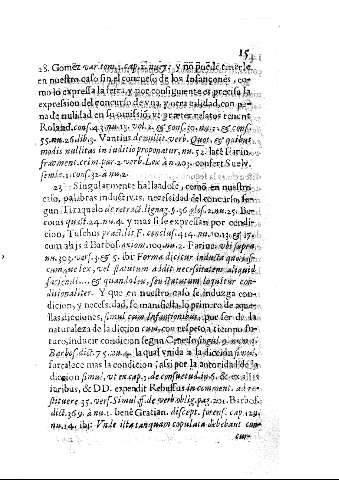 15
28. Gomez var. tom. 1. cap. 2. y no puede tenerse
en nuestro caso sin el concurso de los Infançones, co-
mo lo expressa la letra, y por consiguiente es precisa la
expression del concurso de vna, y otra calidad, con pe-
na de nulidad en su omissiõ, vt præter relatos tenent
Roland. cons. 43. nu. 13. vol. 2. & cons. 30. nu. 31. & cons.
55. nu. 26. lib. 3. Vantius de nullit. verb. Quot, & quibus
modis nullitas in iuditio proponatur, nu. 52. latè Farin.
fragment. crim. par. 2. verb. Lex à nu. 203. confert Suely.
semic. 1. cons. 32. à nu. 2.
23 Singularmente hallandose, como en nuestro
caso, palabras inductivas, necesidad del concurso, se-
gun Tiraquelo de retract. lignag. §. 36. glos. 2. nu. 25. Bor-
cius quæst. 24. nu. 4. y mas si se expressan por condi-
cion, Tuschus pract. lit. F. conclus. 414. nu. 10. 13. & 17.
cum alijs Barbos. axiom. 104. nu. 2. Farino. vbi supra
nu. 305. vers. 3. & 5. ibi: Forma dicitur inducta quotiès-
cumque lex, vel statutum addit necessitatem aliquid
faciendi... & quando lex, seu statutum loquitur con-
ditionaliter. Y que en nuestro caso se induzga con-
dicion, y necesidad, se manifiesta lo primero de aque-
llas dicciones, simul cum Infantionibus, por ser de la
naturaleza de la diccion cum, con respeto a tiempo fu-
turo, inducir condicion segun
Barbos. dict. 75. nu. 4. la qual vnida a la diccion simul,
fortalece mas la condicion, assi por la autoridad de la
diccion simul, vt ex cap. 3. de consuetud. in 6. & ex alijs
iuribus, & DD. expendit Rebuffus in comment. ad re-
stituere 35. vers. Simul ff. de verb. oblig. pag. 201. Barbos.
dict. 369. à nu. 1. benè Gratian. discept. forens. cap. 129.
nu. 14. ibi: Vnde ista tanquam copulata debebant con-
cur-